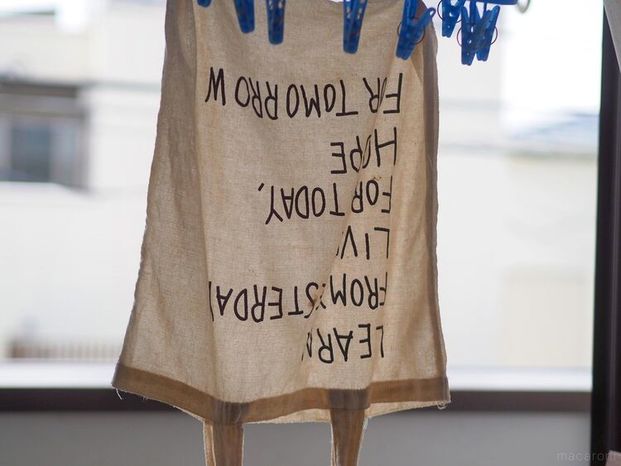 LEARN
FROM YESTERDAY
LIVE
FOR TODAY,
HOPE
FOR TOMORROW
macaroni